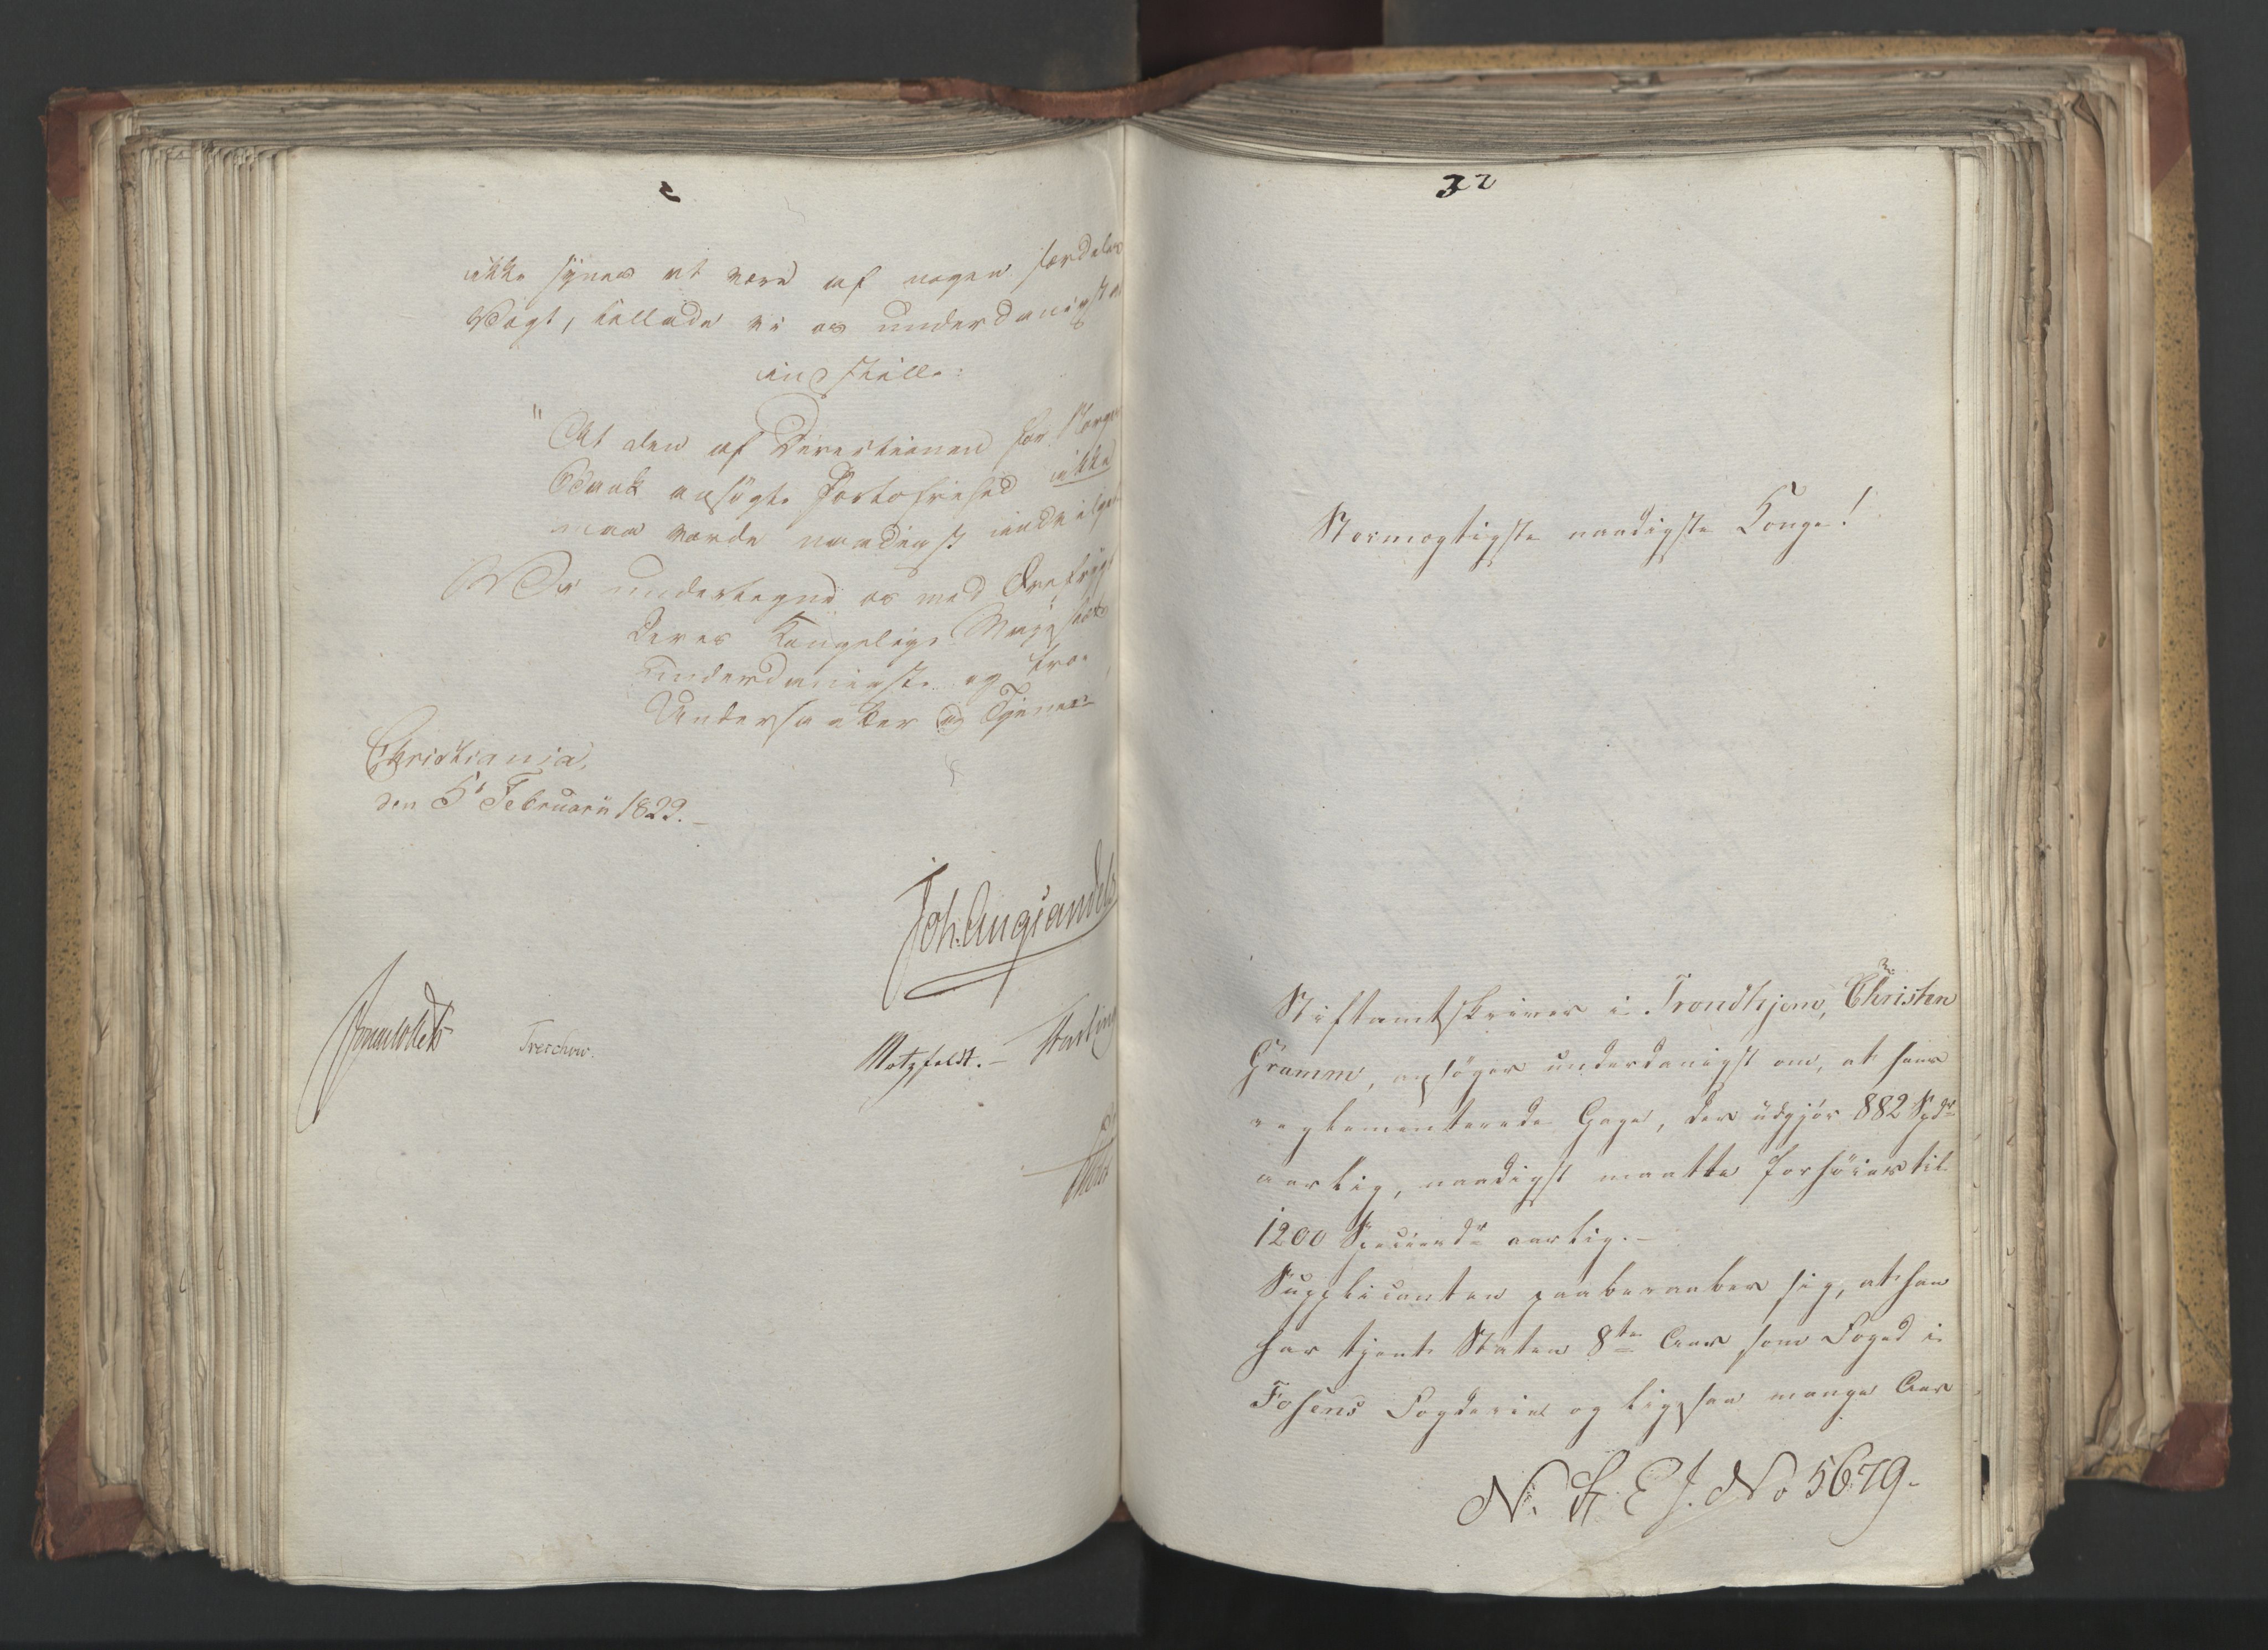 ikke synes at være af nogen særdeles
Vægt, tillade vi os underdanigst at
indstille:
"At den af Directionen for Norges
Bank ansøgte Portofrihed ikke
maa vorde naadigst indvilget.
Vi undertegne os med Ærefrygt
Deres Kongelige Majestæts
underdanigste og troe
Undersaatter og Tjenere
Christiania,
den 5t Februarii 1822.
Joh. Aug. Sandels
Sommerhielm Treschow. Motzfeldt.
32
Stormægtigste naadigste Konge!
Stiftamtskriver i Trondhjem, Christen
Gramm, ansøger underdanigst om, at hans
reglementerede Gage, der udgjør 882 Spdr
aarlig, naadigst maatte forhøies til
1200 Speciesdr aarlig.
Supplicanten paaberaaber sig, at han
har tjent Staten 8te Aar som Foged i
Fosens Fogderie og ligesaa mange Aar
No 5679.